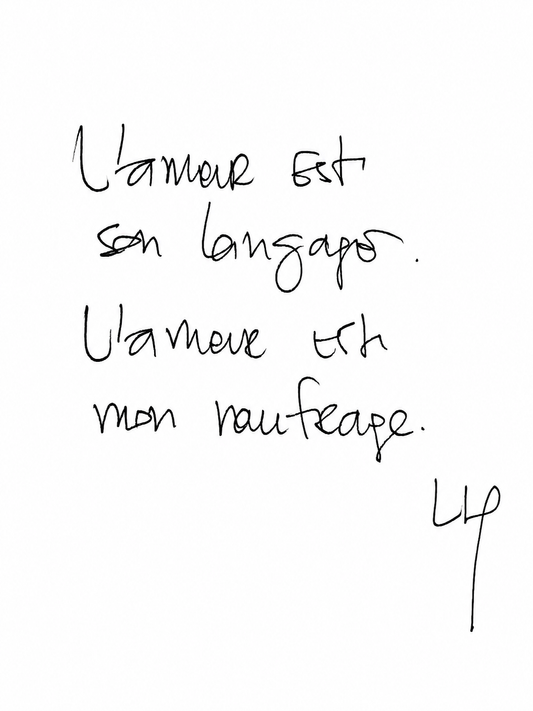 L'amour est
son langage.
L'amour est
mon naufrage.
LLP